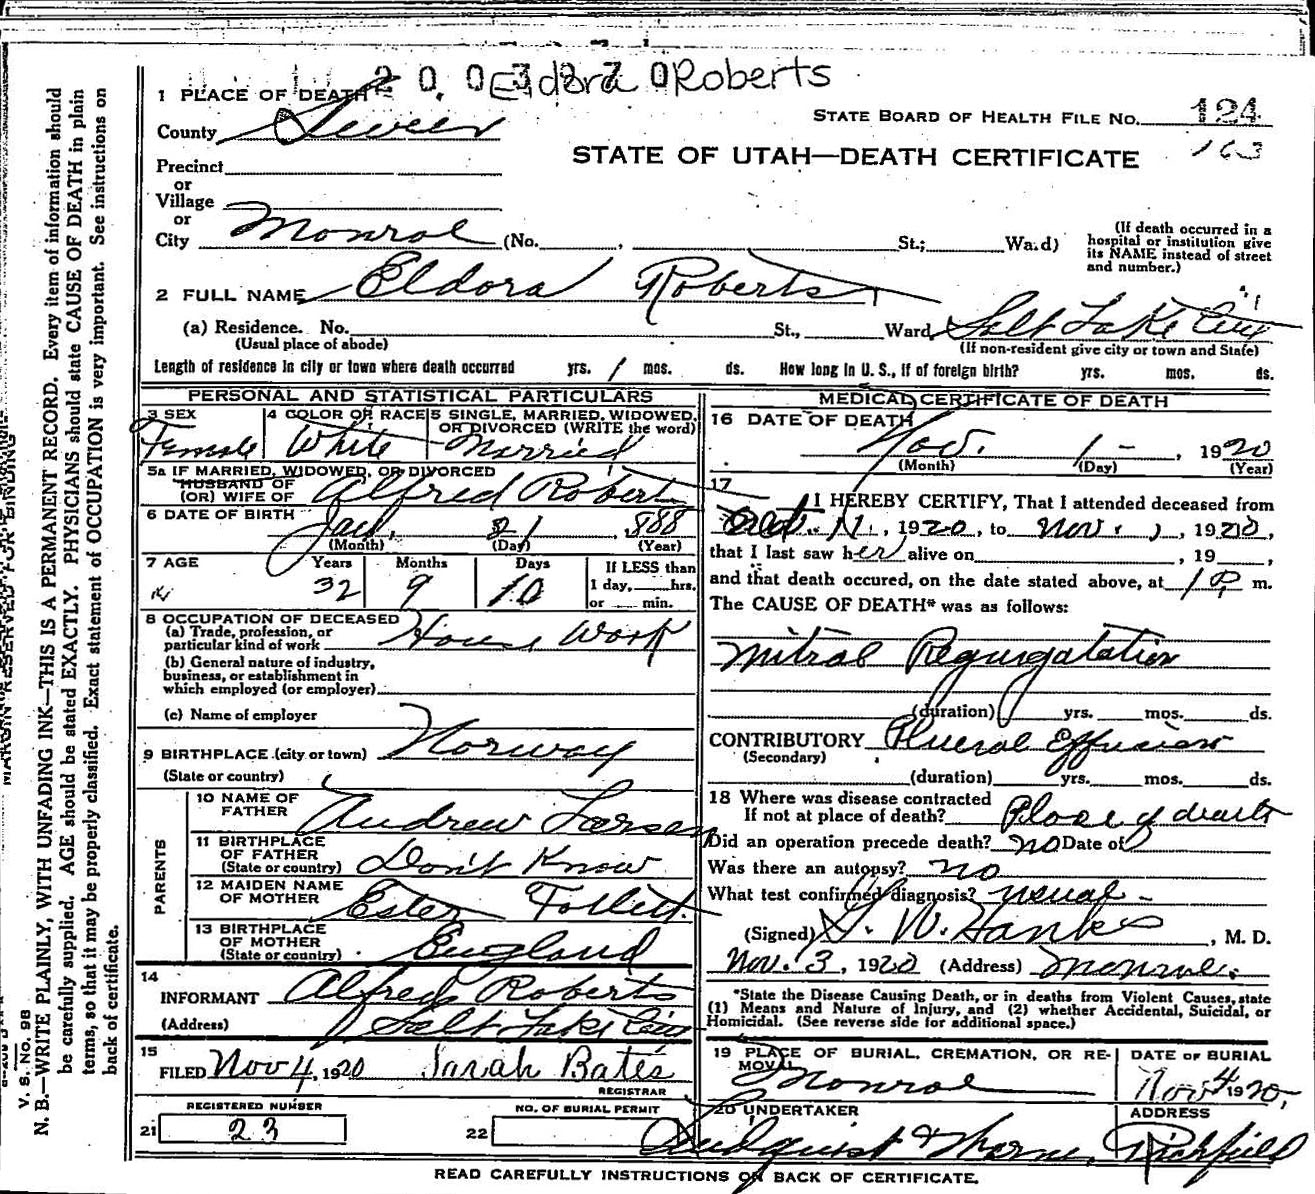 Eldora Roberts
1 PLACE OF DEATH
County Sevier
STATE BOARD OF HEALTH FILE No. 124
163
STATE OF UTAH—DEATH CERTIFICATE
Precinct
or
Village
or
City Monroe (No. , St.; Wa.d)
(If death occurred in a hospital or institution give its NAME instead of street and number.)
2 FULL NAME Eldora Roberts
(a) Residence. No. St., Ward, Salt Lake City
(Usual place of abode) (If non-resident give city or town and State)
Length of residence in city or town where death occurred yrs. 1 mos. ds. How long in U. S., if of foreign birth? yrs. mos. ds.
PERSONAL AND STATISTICAL PARTICULARS
3 SEX Female
4 COLOR OR RACE White
5 SINGLE, MARRIED, WIDOWED, OR DIVORCED (WRITE the word) Married
5a IF MARRIED, WIDOWED, OR DIVORCED
HUSBAND OF
(OR) WIFE OF Alfred Roberts
6 DATE OF BIRTH 21 1888
(Month) (Day) (Year)
7 AGE Years Months Days If LESS than
32 9 10 1 day, hrs.
or min.
8 OCCUPATION OF DECEASED
(a) Trade, profession, or
particular kind of work House Work
(b) General nature of industry,
business, or establishment in
which employed (or employer)
(c) Name of employer
9 BIRTHPLACE (city or town) Norway
(State or country)
PARENTS
10 NAME OF FATHER Andrew Larsen
11 BIRTHPLACE OF FATHER (State or country) Don't Know
12 MAIDEN NAME OF MOTHER Ester Follett
13 BIRTHPLACE OF MOTHER (State or country) England
14
INFORMANT Alfred Roberts
(Address) Salt Lake City
15
FILED Nov 4, 1920 Sarah Bates
REGISTRAR
REGISTERED NUMBER NO. OF BURIAL PERMIT
21 23 22
MEDICAL CERTIFICATE OF DEATH
16 DATE OF DEATH
Nov. 1 – , 1920
(Month) (Day) (Year)
17 I HEREBY CERTIFY, That I attended deceased from
Oct. 11, 1920, to Nov. 1, 1920,
that I last saw her alive on , 19 ,
and that death occured, on the date stated above, at 1 P m.
The CAUSE OF DEATH* was as follows:
Mitral Regurgatation
(duration) yrs. mos. ds.
CONTRIBUTORY Plueral Effusion
(Secondary)
(duration) yrs. mos. ds.
18 Where was disease contracted
If not at place of death? Place of death
Did an operation precede death? no Date of
Was there an autopsy? no
What test confirmed diagnosis? usual –
(Signed) W. Hanks, M. D.
Nov. 3, 1920 (Address) Monroe.
*State the Disease Causing Death, or in deaths from Violent Causes, state
(1) Means and Nature of Injury, and (2) whether Accidental, Suicidal, or
Homicidal. (See reverse side for additional space.)
19 PLACE OF BURIAL, CREMATION, OR REMOVAL DATE OF BURIAL
Monroe Nov 4 1920,
20 UNDERTAKER ADDRESS
Richfield
READ CAREFULLY INSTRUCTIONS ON BACK OF CERTIFICATE.
MARGIN RESERVED FOR BINDING
V. S. No. 98
N. B.—WRITE PLAINLY, WITH UNFADING INK—THIS IS A PERMANENT RECORD. Every item of information should
be carefully supplied. AGE should be stated EXACTLY. PHYSICIANS should state CAUSE OF DEATH in plain
terms, so that it may be properly classified. Exact statement of OCCUPATION is very important. See instructions on
back of certificate.